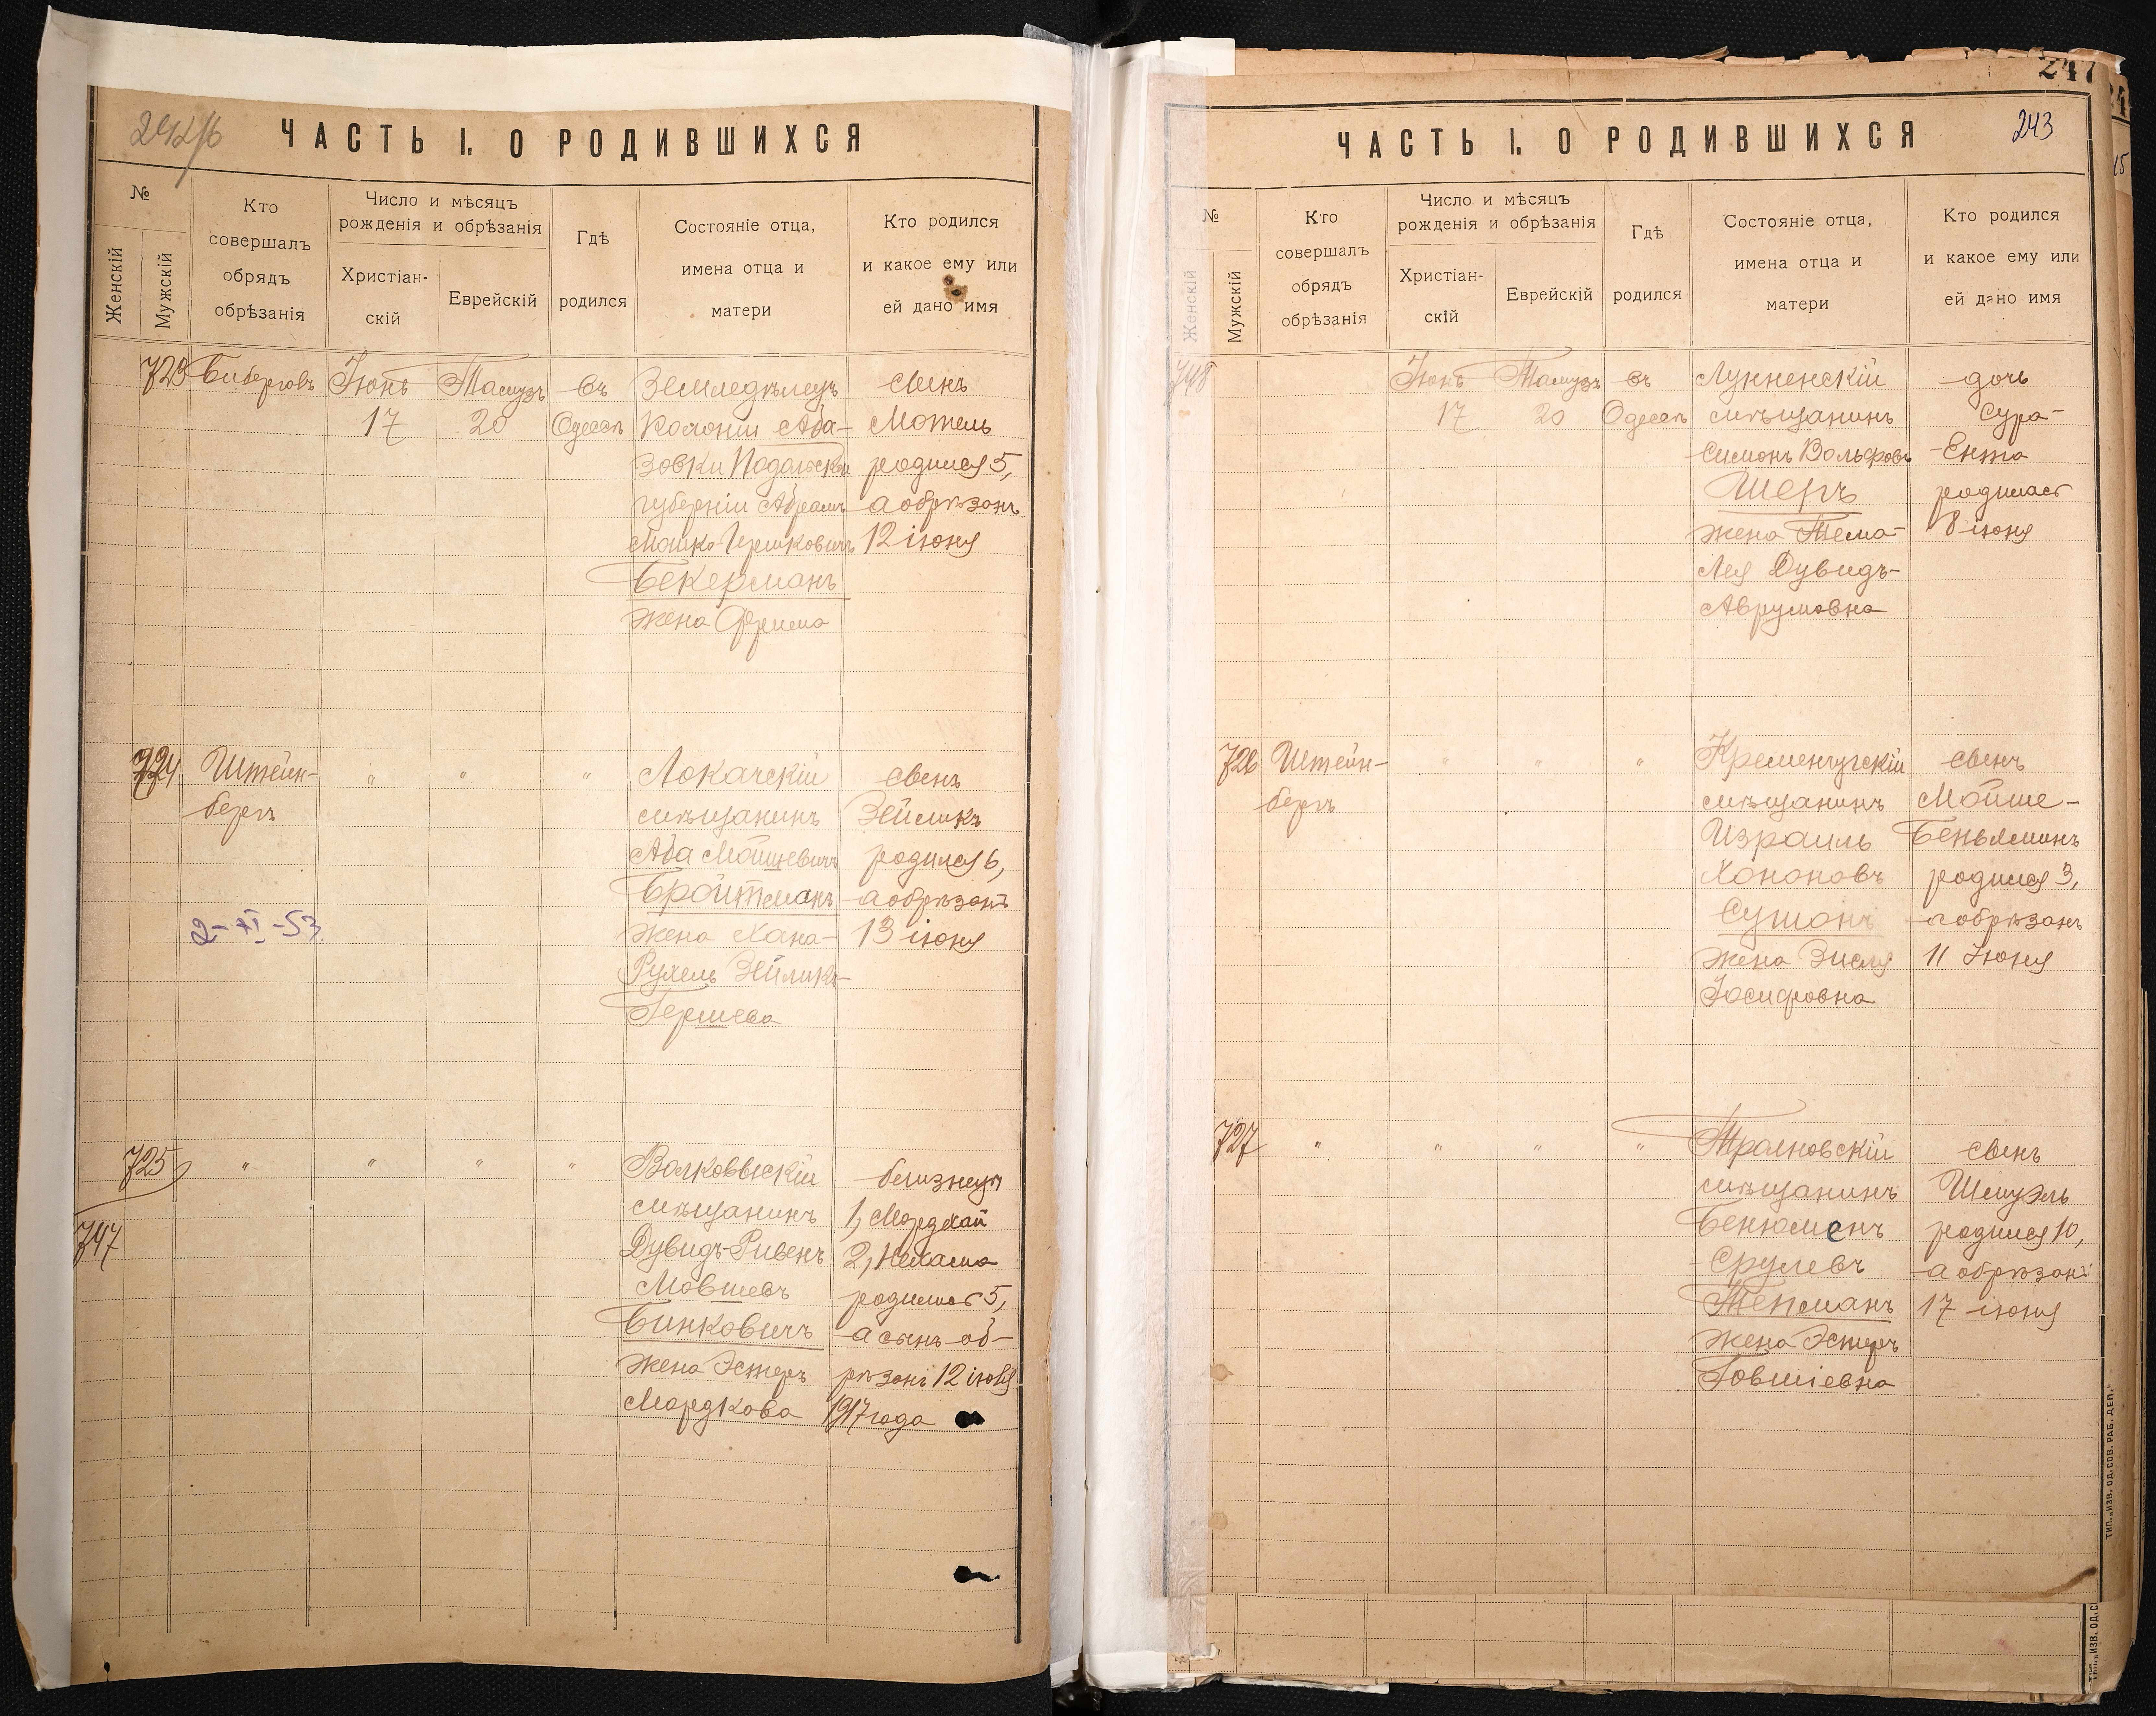 ЧАСТЬ I. О РОДИВШИХСЯ
№
Женскій
Мужскій
Кто
совершалъ
обрядъ
обрѣзанія
Число и мѣсяцъ
рожденія и обрѣзанія
Христіан-
скій
Еврейскій
Гдѣ
родился
Состояніе отца,
имена отца и
матери
Кто родился
и какое ему или
ей дано имя
723
Іюнь
17
Тамузъ
20
въ
Одессѣ
Земледѣлецъ
Колоніи Аба-
зовки Подольской
губерніи Абрамъ
Мошко Гершковичъ
Бекерманъ
жена Фрима
сынъ
Мотель
родился 5,
а обрѣзанъ
12 іюня
724
Штейн-
бергъ
"
"
"
2-XI-53
Локачскій
мѣщанинъ
Аба Мошкевичъ
Бройтманъ
жена Хана-
Рухель
Гершева
сынъ
Зейликъ
родился 6,
а обрѣзанъ
13 іюня
725
747
"
"
"
"
Волковыскій
мѣщанинъ
Дувидъ-Рувенъ
Мовшевъ
Бинковичъ
жена Эстеръ
Мордкова
близнецы
1, Мордхай
2, Нехама
родились 5,
а сынъ об-
рѣзанъ 12 іюня
1917 года
247
243
ЧАСТЬ I. О РОДИВШИХСЯ
№
Женскій
Мужскій
Кто
совершалъ
обрядъ
обрѣзанія
Число и мѣсяцъ
рожденія и обрѣзанія
Христіан-
скій
Еврейскій
Гдѣ
родился
Состояніе отца,
имена отца и
матери
Кто родился
и какое ему или
ей дано имя
748
Іюнь
17
Тамузъ
20
въ
Одессѣ
мѣщанинъ
Симонъ Вольфовъ
Шеръ
жена Тема-
Лея Дувидъ-
Аврумовна
дочь
Сура-
Ента
родилась
8 іюня
726
Штейн-
бергъ
"
"
"
Кременчугскій
мѣщанинъ
Израиль
Хононовъ
жена Зисля
Іосифовна
сынъ
Мойше-
Беньяминъ
родился 3,
а обрѣзанъ
11 Іюня
727
"
"
"
"
мѣщанинъ
Бенюменъ
Срулевъ
Тепманъ
жена Эстеръ
Говшіевна
сынъ
Шмуэль
родился 10,
а обрѣзанъ
17 іюня
ТИП. „ИЗВ. ОД. СОВ. РАБ. ДЕП."